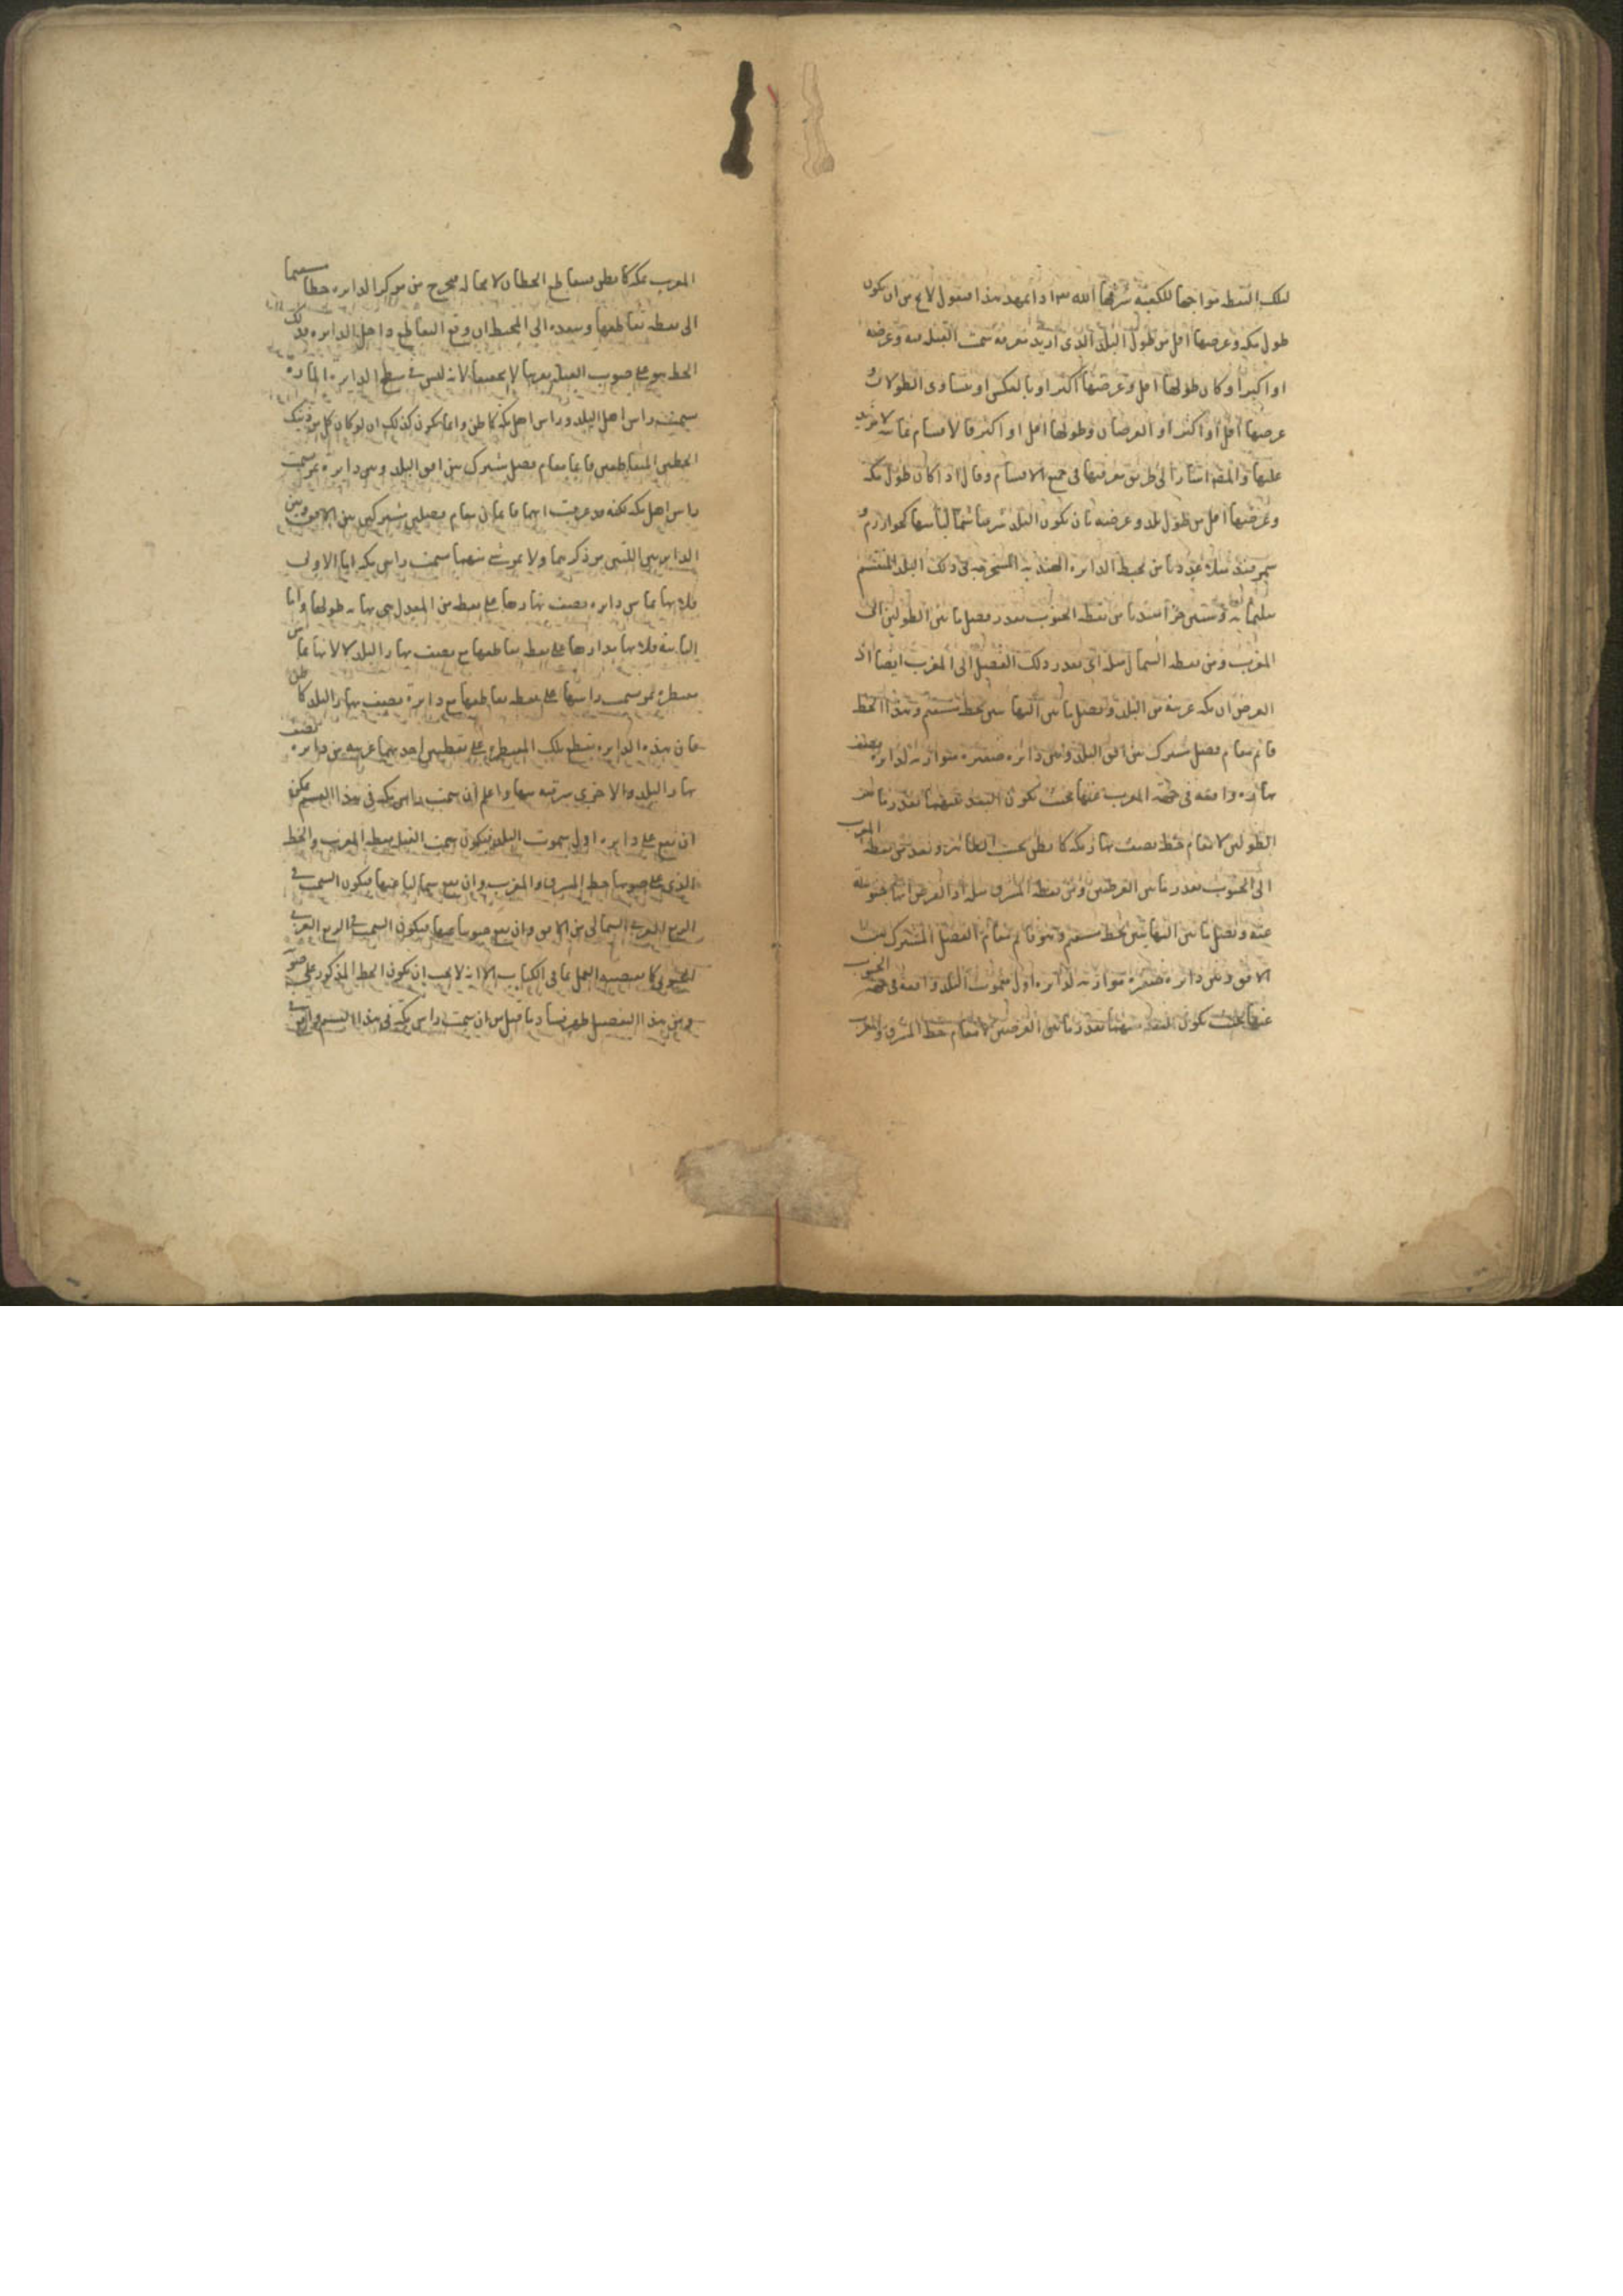 لتلك النقطة مواجها للكعبة شرفها الله تعالى اذا تمهد هذا فنقول لا يخ من ان يكون
طول مكة وعرضها اقل من طول البلد الذى اريد معرفة سمت القبلة فيه وعرضه
او اكثر او كان طولها اقل وعرضها اكثر او بالعكس او يتساوى الطولان و
عرضها اقل او اكثر او العرضان وطولها اقل او اكثر فالاقسام ثمانية لا مزيد
عليها والمصنف اشار الى طريق معرفتها فى جميع الاقسام وقال اذا كان طول مكة
وعرضها اقل من طول بلد وعرضه بان يكون البلد شرقيا شماليا منها كخوارزم و
سمرقند مثلا عددنا من محيط الدائرة الهندية المستخرجة فى ذلك البلد المنقسم
بثلثمائة وستين جزأ مبتدئا من نقطة الجنوب بقدر فضل ما بين الطولين الى
المغرب ومن نقطة الشمال مثله اى بقدر ذلك الفضل الى المغرب ايضا اذ
الفرض ان مكة غربية من البلد ونصل ما بين النهايتين بخط مستقيم وهذا الخط
قائم مقام فصل مشترك بين افق البلد وبين دائرة صغيرة موازية لدائرة نصف
نهاره واقعة فى جهة المغرب عنها بحيث يكون البعد بينهما بقدر ما بين
الطولين لا مقام خط نصف نهار مكة كما يظن بحسب الظاهر ونعد من نقطة المغرب
الى الجنوب بقدر ما بين العرضين ومن نقطة المشرق مثله اذ الفرض انها جنوبية
عنه ونصل ما بين النهايتين بخط مستقيم وهو قائم مقام الفصل المشترك بين
الافق وبين دائرة صغيرة موازية لدائرة اول سموت البلد واقعة فى جهة الجنوب
عنها بحيث يكون البعد بينهما بقدر ما بين العرضين لا مقام خط المشرق والمغرب
المغرب بمكة كما يظن فيتقاطع الخطان لا محالة فيخرج من مركز الدائرة خطا مستقيما
الى نقطة تقاطعهما وينفذه الى المحيط ان وقع التقاطع داخل الدائرة فذلك
الخط هو على صوب القبلة تقريبا لا تحقيقا لانه ليس فى سطح الدائرة المارة
بسمت راس اهل البلد وراس اهل مكة كما ظن وانما يكون كذلك ان لو كان كل من ذينك
الخطين المتقاطعين قائما مقام فصل مشترك بين افق البلد وبين دائرة تمر بسمت
راس اهل مكة لكنه قد عرفت انهما قائمان مقام فصلين مشتركين بين الافق وبين
الدائرتين اللتين مر ذكرهما ولا يمر شئ منهما بسمت راس مكة اما الاولى
فلانها تماس دائرة نصف نهارها على نقطة من المعدل هى نهاية طولها واما
الثانية فلانها مدارها على نقطة تقاطعها مع نصف نهار البلد لا لانها تماس
مقنطرة تمر بسمت راسها على نقطة تقاطعها مع دائرة نصف نهار البلد كما ظن
فان هذه الدائرة تقطع تلك المقنطرة على نقطتين احديهما غربية من دائرة نصف
نهار البلد والاخرى شرقية منها واعلم ان سمت راس مكة فى هذا القسم يمكن
ان يقع على دائرة اول سموت البلد فيكون سمت القبلة نقطة المغرب والخط
الذى على صوبها خط المشرق والمغرب وان يقع شماليا عنها فيكون السمت فى
الربع الغربى الشمالى من الافق وان يقع جنوبيا عنها فيكون السمت فى الربع الغربى
الجنوبى كما يقتضيه العمل بما فى الكتاب الا انه لا يجب ان يكون الخط المذكور على صوبه
ومن هذا التفصيل ظهر فساد ما قيل من ان سمت راس مكة فى هذا القسم واقع